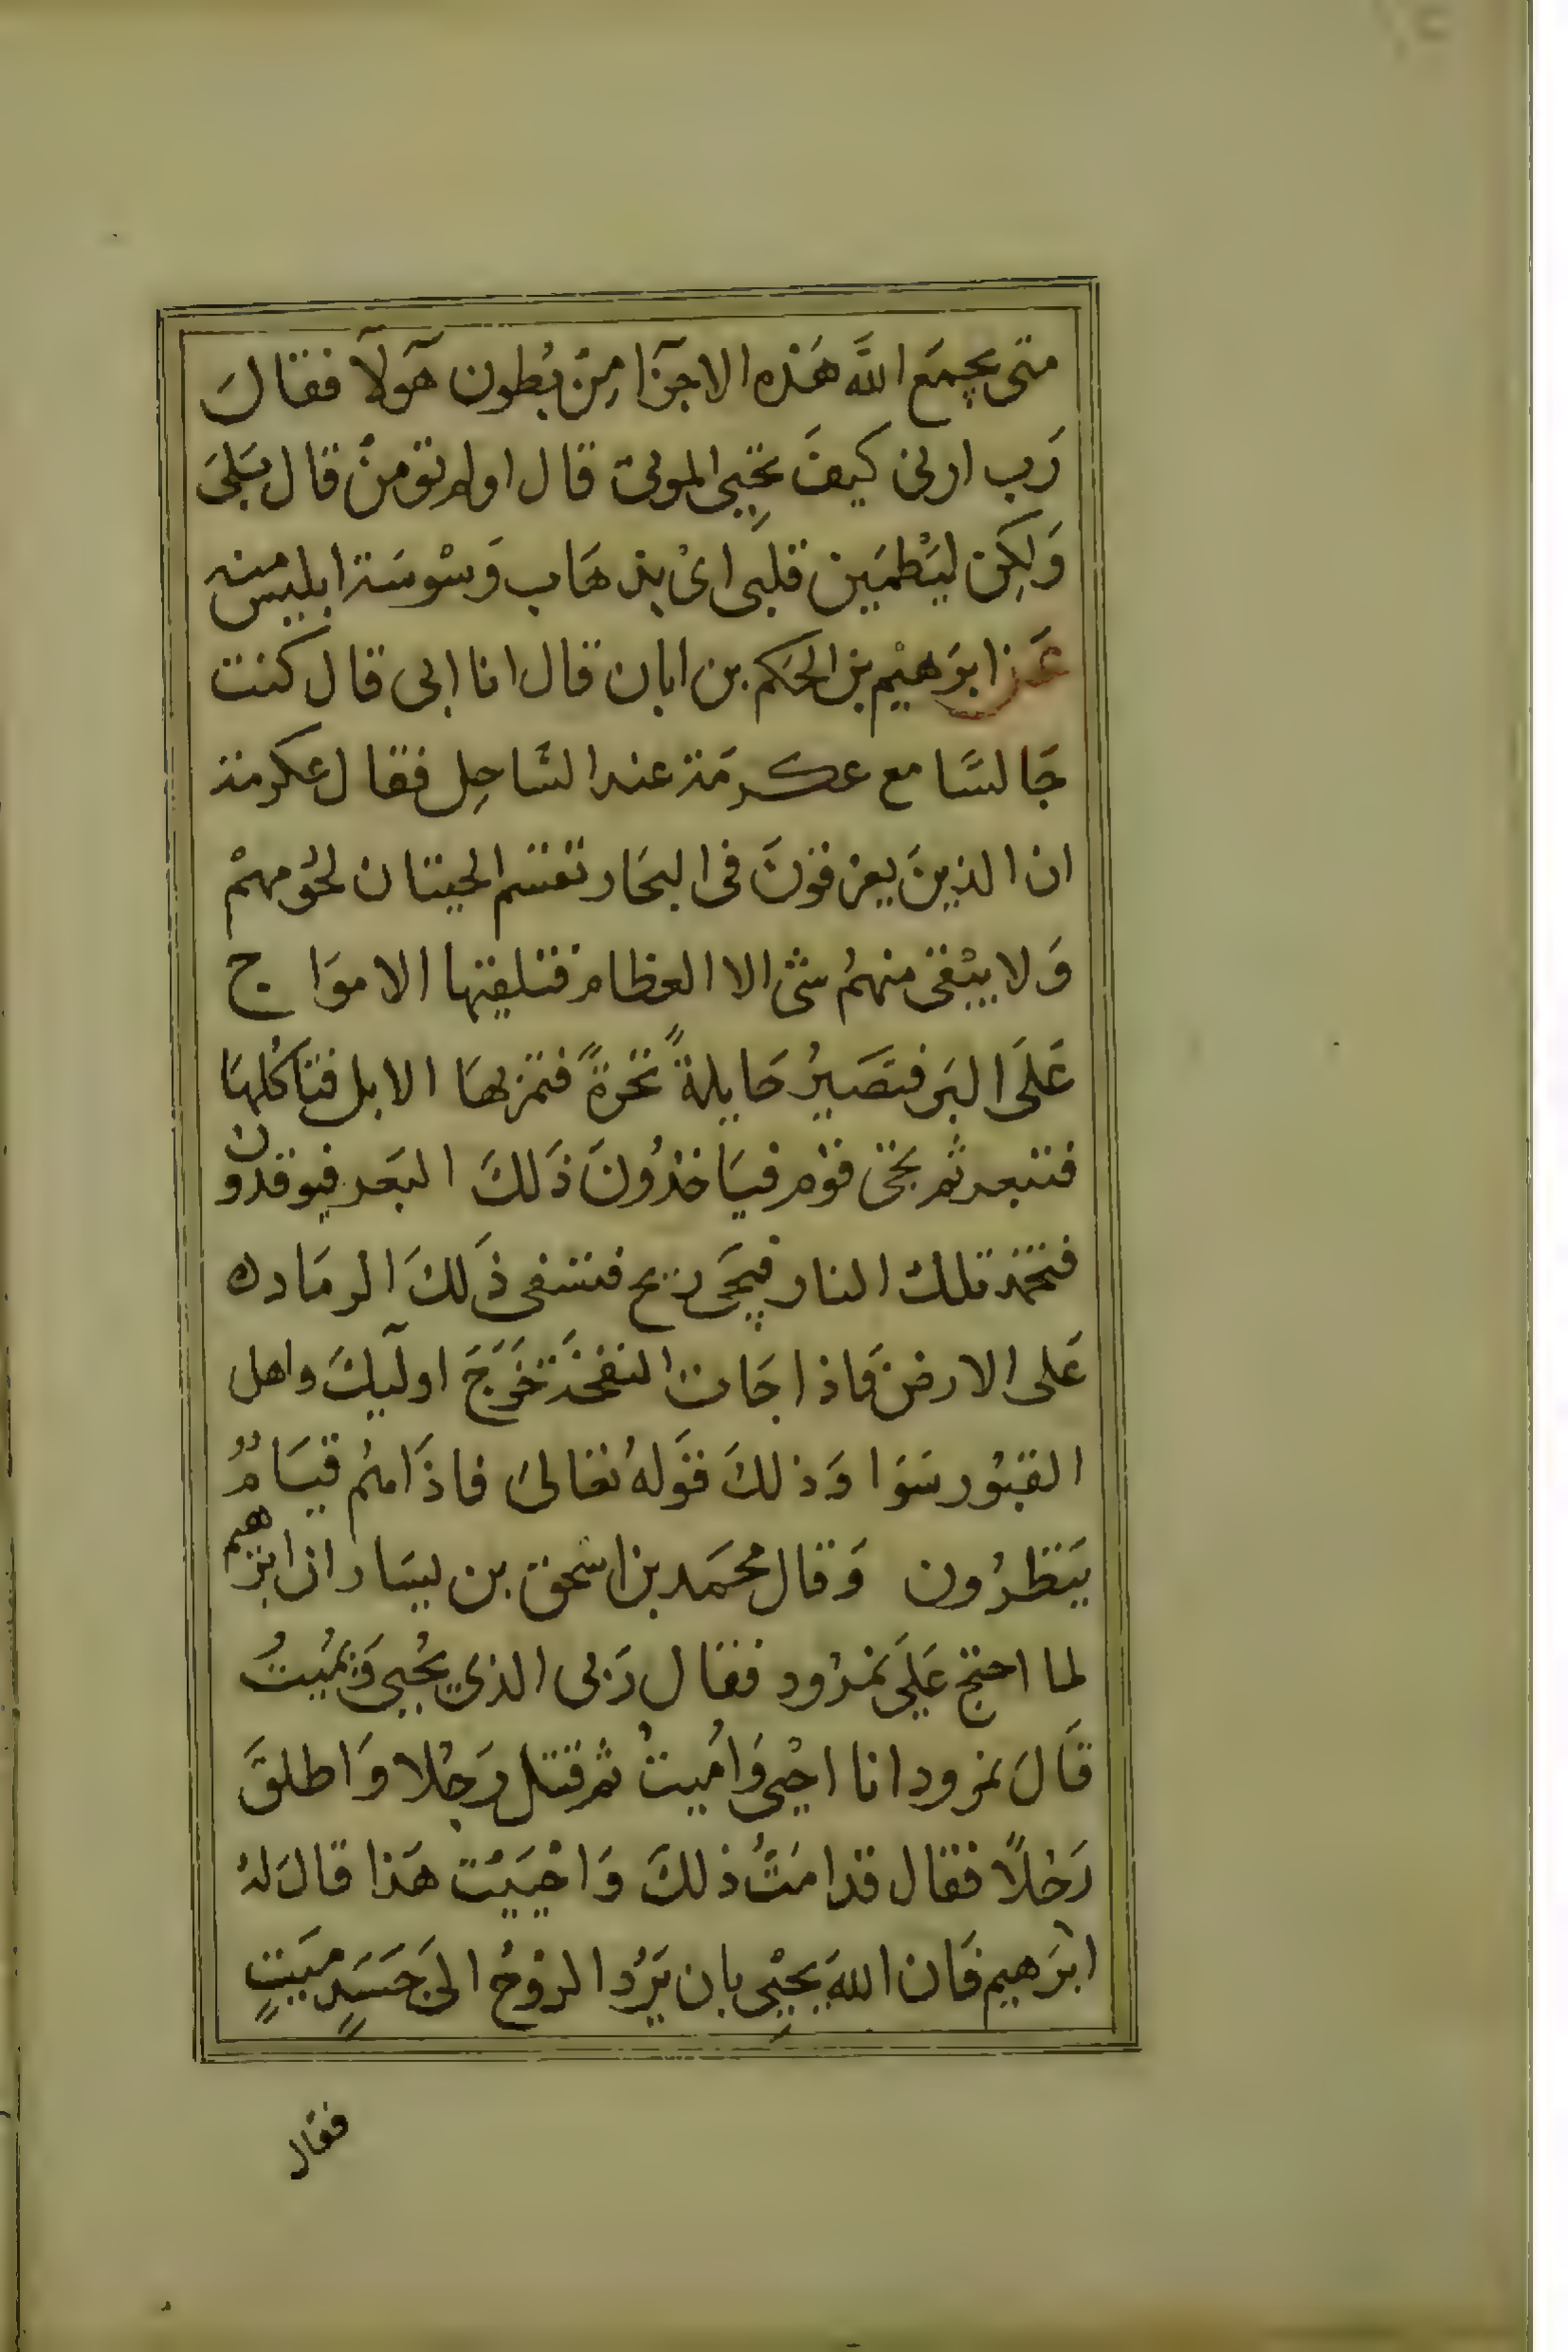 متى يجمَع اللَّه هَذه الاجزَآ مِنْ بُطون هَولآ فقالَ
رَب ارنى كيفَ تحيِى الموتى قال اولم تومنْ قال بَلىَ
وَلكِن ليَطمَين قلبى اىْ بذهَاب وَسْوسَة ابليس منه
عَن ابرَهيْم بن الحكم بن ابان قال انا ابى قال كنت
جَالسًا مع عكرمَة عند السَّاحِل فقال عكرمة
ان الذينَ يغرقونَ فى البحَار تقسم الحيتان لحُومهمْ
وَلا يبْقى منهمُ شئ الا العظام فتلقيها الاموَاج
عَلَى البَر فتصَيرُ حَايلةً نخرةً فتمر بهَا الابل فتاكُلهَا
فتبعر ثم يجى قوْم فيَاخذُونَ ذَلكَ البَعر فيوقدون
فتخمد تلك النار فيجَى ريح فتسفى ذَلكَ الرمَاده
عَلى الارض فَاذا جَات النفخَة تخَرَجَ اولَيكَ واهل
القبُور سَوَا وَذلكَ قوَلهُ تعَالىَ فاذَا هُم قيَامٌ
يَنظرُون وَقال محمَد بن اسحق بن يسَار ان ابرهيم
لما احتج عَلىَ نمرُود فقال رَبى الذي يحُيى وَيمُيتُ
قَالَ نمرود انا احْيى وَامُيتُ ثم قتل رَجُلا وَاطلقَ
رَجُلاً فقال قد امَتُّ ذلكَ وَاحْيَيْت هَذا قالَ لهُ
ابْرَهيم فَان اللهَ يحيْى بان يَرُد الروْحُ الىَ جَسَدٍ مَيتٍ
فقال